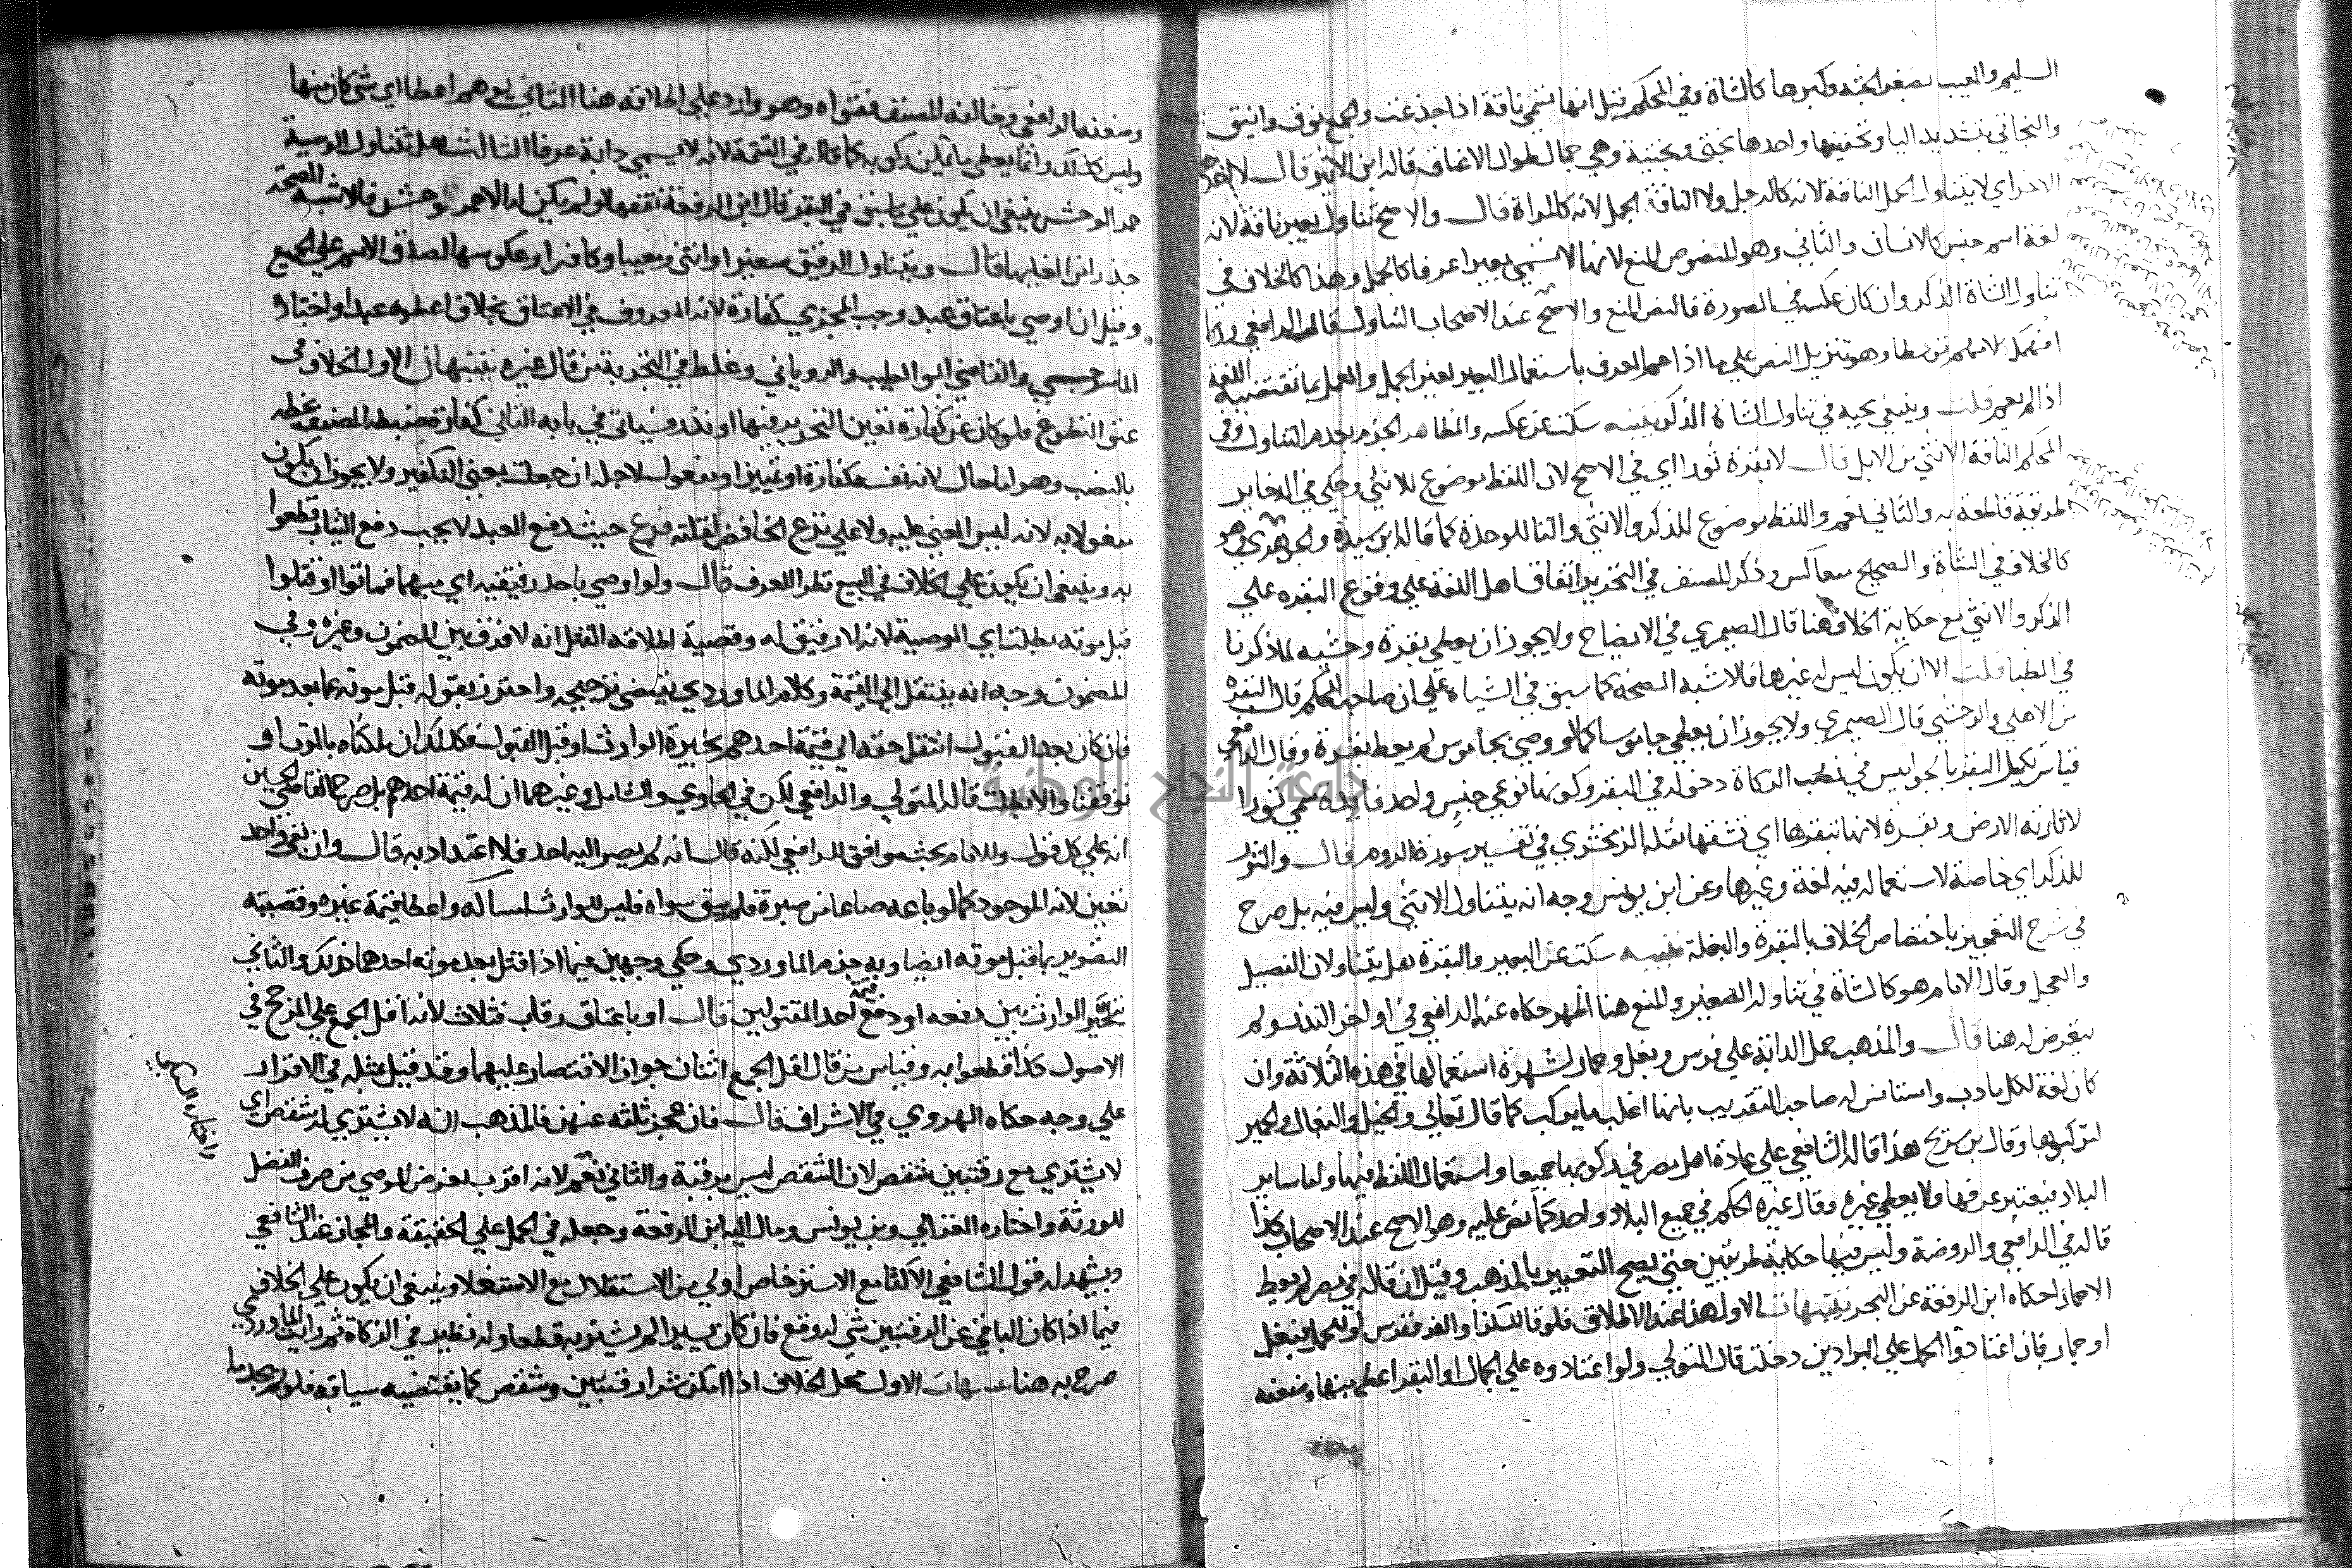 السليم والمعيب صغير الجثه وكبيرها كالشاة وفي المحكم قيل انها تسمى ناقة اذا جذعت والجمع نوق وانيق
والبخاتي بتشديد اليا وتخفيفها واحدها بختي وبختية وهي جمال طوال الاعناق قاله ابن الاثير قال لا احدهما
الاخر اي لا يتناول الجمل الناقة لانه كالرجل ولا الناقة الجمل لانه كالمراة قال والاصح تناول بعير ناقة لانه
لغة اسم جنس كالانسان والثاني وهو المنصوص المنع لانها لا تسمى بعيرا عرفا كالجمل وهذا كالخلاف في
تناول الشاة الذكر وان كان عكسه في الصورة فالنص المنع والاصح عند الاصحاب التناول قال الرافعي وربما
افهمك كلامهم توسطا وهو تنزيل النص على ما اذا عم العرف باستعمال البعير بمعنى الجمل والعمل بما تقتضيه اللغة
اذا لم يعم قلت وينبغي مجيه في تناول الشاة الذكر تنبيه سكت عن عكسه والظاهر الجزم بعدم التناول وفي
المحكم الناقة الانثى من الابل قال لا بقرة ثورا اي في الاصح لان اللفظ موضوع للانثى وحكي في الذخاير
طريقة قاطعة به والثاني نعم واللفظ موضوع للذكر والانثى والتا للوحدة كما قاله ابن سيدة والجوهري وهو
كالخلاف في الشاة والصحيح معاكس وذكر المصنف في التحرير اتفاق اهل اللغة على وقوع البقره على
الذكر والانثى مع حكاية الخلاف هنا قال الصيمري في الايضاح ولا يجوز ان يعطي بقرة وحشيه لما ذكرنا
في الظبا قلت الا ان يكون ليس له غيرها فالاشبه الصحة كما سبق في الشياه على ان صاحب المحكم قال البقره
من الاهلي والوحشي قال الصيمري ولا يجوز ان يعطي جاموسا كما لو وصى بجاموس لم يعط بقرة وقال الرافعي
قياس تكميل البقر بالجواميس في نصب الزكاة دخوله في البقر وكونهما نوعي جنس واحد فايدة سمي ثورا
لاثارته الارض وبقرة لانها تبقرها اي تشقها نقله الزمخشري في تفسير سورة الروم قال والثور
للذكر اي خاصة لاستعماله فيه لغة وغيرها وعن ابن يونس وجه انه يتناول الانثى وليس فيه بل صرح
في شرح التعجيز باختصاص الخلاف بالبقرة والبغلة تنبيه سكت عن البعير والبقرة هل يتناولان الفصيل
والعجل وقال الامام هو كالشاة في تناوله الصغير والمنع هنا اظهر حكاه عنه الرافعي في اواخر النذر ولم
يتعرض له هنا قال والمذهب حمل الدابة على فرس وبغل وحمار لشهرة استعمالها في هذه الثلاثة وان
كان لغة لكل ما دب واستانس له صاحب التقريب بانها اغلب ما يركب كما قال تعالى والخيل والبغال والحمير
لتركبوها وقال بن سريج هذا قاله الشافعي على عادة اهل مصر في ركوبها جميعا واستعمال اللفظ فيها واما ساير
البلاد فيعتبر عرفها ولا يعطي غيره وقال غيره الحكم في جميع البلاد واحد كما نص عليه وهو الاصح عند الاصحاب كذا
قاله في الرافعي والروضة وليس فيها حكاية طريقين حتى يصح التعبير بالمذهب وقيل ان قاله في مصر لم يعط
الا حمارا حكاه ابن الرفعة عن البحر تنبيهات الاول هذا عند الاطلاق فلو قال للكر او الفر ففرس او للحمل فبغل
او حمار فان اعتادوا الحمل على البراذين دخلت قال المتولي ولو اعتادوه على الجمال او البقر اعطي منها وضعفه
وضعفه الرافعي وخالفه المصنف فقواه وهو وارد على اطلاقه هنا الثاني يوهم اعطا اي شي كان منها
وليس كذلك وانما يعطى ما يمكن ركوبه كما قاله في التتمة لانه لا يسمى دابة عرفا الثالث هل تتناول الوصية
حمر الوحش ينبغي ان يكون على ما سبق في البقر قال ابن الرفعة تفقها ولو لم يكن له الا حمر وحش فالاشبه الصحة
حذرا من الغايها قال ويتناول الرقيق صغيرا وانثى ومعيبا وكافرا وعكوسها لصدق الاسم على الجميع
وقيل ان اوصى باعتاق عبد وجب المجزي كفارة لانه المعروف في الاعتاق بخلاف اعطوه عبدا واختاره
الماسرجسي والقاضي ابو الطيب والروياني وغلط في التجربة من قال غيره تنبيهان الاول الخلاف في
عتق التطوع فلو كان عن كفارة تعين التحرير فيها او نذر فسياتي في بابه الثاني كفارة ضبطه المصنف بخطه
بالنصب وهو اما حال لانه نفسه كفارة او تمييزا ومفعول لاجله ان جعلت بمعنى التكفير ولا يجوز ان يكون
مفعولا به لانه ليس المعنى عليه ولا على نزع الخافض لقلته فرع حيث دفع العبد لا يجب دفع الثياب قطعوا
به وينبغي ان يكون على الخلاف في البيع نظرا للعرف قال ولو اوصى باحد رقيقيه اي مبهما فماتوا او قتلوا
قبل موته بطلت اي الوصية لانه لا رقيق له وقضية اطلاقه القتل انه لا فرق بين المضمون وغيره وفي
المضمون وجه انه ينتقل الى القيمة وكلام الماوردي يقتضي ترجيحه واحترز بقوله قبل موته عما بعد موته
فان كان بعد القبول انتقل حقه الى قيمة احدهم بخيرة الوارث او قبل القبول فكذلك ان ملكناه بالموت او
توقفنا والا بطلت قاله المتولي والرافعي لكن في الحاوي والشامل وغيرهما ان له قيمة احدهم بل صرح القاضي الحسين
انه على كل قول وللامام بحث موافق الرافعي لكنه قال انه لم يصر اليه احد فلا اعتداد به قال وان بقي واحد
تعين لانه الموجود كما لو باعه صاعا من صبرة فلم يبق سواه فليس للوارث امساكه واعطا قيمة غيره وقضيته
التصوير بما قبل موته ايضا وبه جزم الماوردي وحكي وجهين فيما اذا قتل بعد موته احدهما ذلك والثاني
يتخير الوارث بين دفعه او دفع قيمة احد المقتولين قال او باعتاق رقاب فثلاث لانه اقل الجمع على المرجح في
الاصول كذا قطعوا به وقياس من قال اقل الجمع اثنان جواز الاقتصار عليهما وقد قيل بمثله في الاقرار
على وجه حكاه الهروي في الاشراف قال فان عجز ثلثه عنهن فالمذهب انه لا يشتري له شقص اي
لا يشتري مع رقبتين شقص لان الشقص ليس برقبة والثاني نعم لانه اقرب لغرض الموصي من صرف الفضل
للورثة واختاره الغزالي وبن يونس ومال اليه ابن الرفعة وجعله في الحمل على الحقيقة والمجاز عند الشافعي
ويشهد له قول الشافعي الاكثار مع الاسترخاص اولى من الاستقلال مع الاستغلا وينبغي ان يكون على الخلاف
فيما اذا كان الباقي عن الرقبتين شي له وقع فان كان يسيرا لم يشتر به قطعا وله نظير في الزكاة ثم رايت الماوردي
صرح به هنا تنبيهات الاول محل الخلاف اذا امكن شرا رقبتين وشقص كما يقتضيه سياقه فلو لم يجد ما